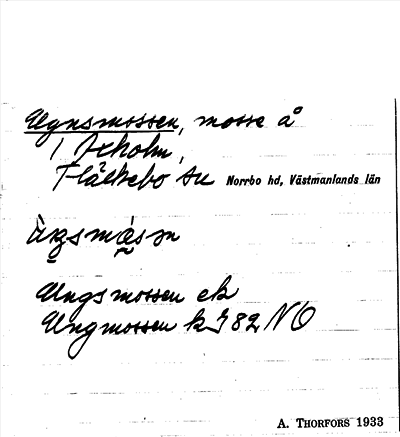 Ugnsmossen, mosse å
1 Oxholm,
Fläckebo sn Norrbo hd, Västmanlands län
Ungsmossen ek
Ungmossen k J82 NO
A. THORFORS 1933